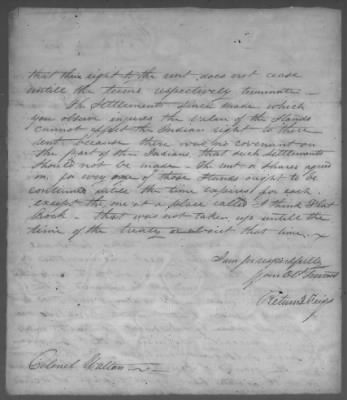 that their right to the rent does not cease
untill the terms respectively terminate —
The Settlements since made which
you observe injures the value of the Stands
cannot effect the Indian right to there
rent. because there was no covenant on
the part of the Indians, that such settlements
should not be made — the rent or shares agreed
on for every one of those Stands ought to be
continued untill the time expires for each.
except the one at a place called I think Flat
Rock — that was not taken up untill the
time of the treaty or about that time. —
I am [very] respectfully
your Obt Servant
Return J Meigs
Colonel Walton